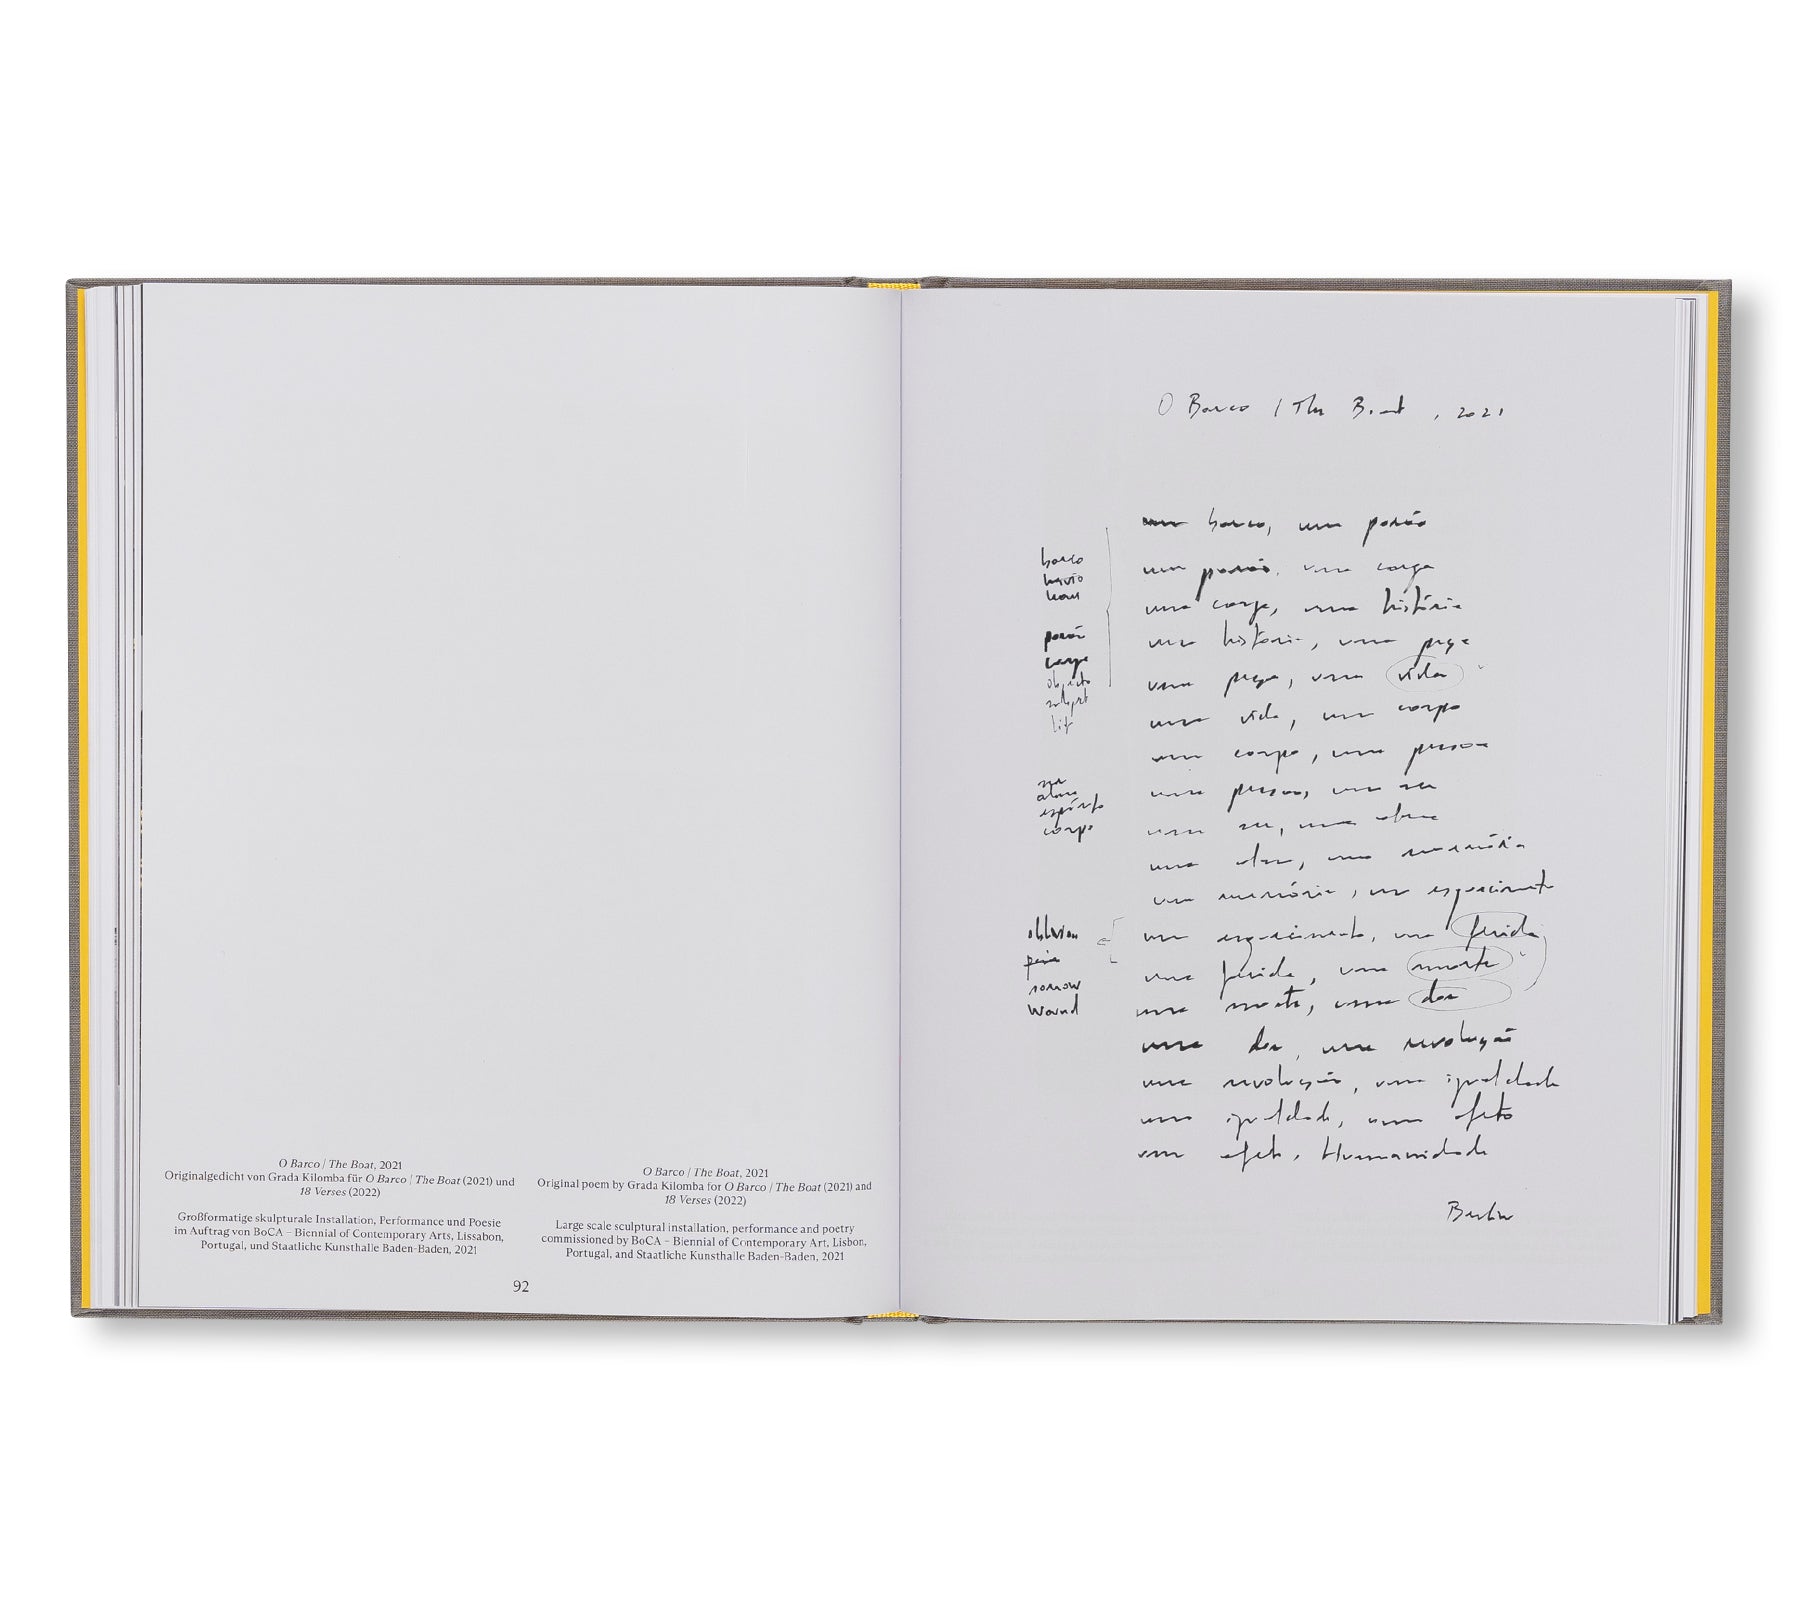 O Barco | The Boat, 2021
Originalgedicht von Grada Kilomba für O Barco | The Boat (2021) und
18 Verses (2022)
Großformatige skulpturale Installation, Performance und Poesie
im Auftrag von BoCA – Biennial of Contemporary Arts, Lissabon,
Portugal, und Staatliche Kunsthalle Baden-Baden, 2021
O Barco | The Boat, 2021
Original poem by Grada Kilomba for O Barco | The Boat (2021) and
18 Verses (2022)
Large scale sculptural installation, performance and poetry
commissioned by BoCA – Biennial of Contemporary Art, Lisbon,
Portugal, and Staatliche Kunsthalle Baden-Baden, 2021
92
O Barco / The Boat, 2021
um barco, um porão
um porão, uma carga
uma carga, uma história
uma história, uma peça
uma peça, uma vida
uma vida, um corpo
um corpo, uma pessoa
uma pessoa, um ser
um ser, uma alma
uma alma, uma memória
uma memória, um esquecimento
um esquecimento, uma ferida
uma ferida, uma morte
uma morte, uma dor
uma dor, uma revolução
uma revolução, uma igualdade
uma igualdade, um afeto
um afeto, Humanidade
Berlin
barco
porão
carga
objecto
ser
alma
espírito
corpo
oblivion
sorrow
wound